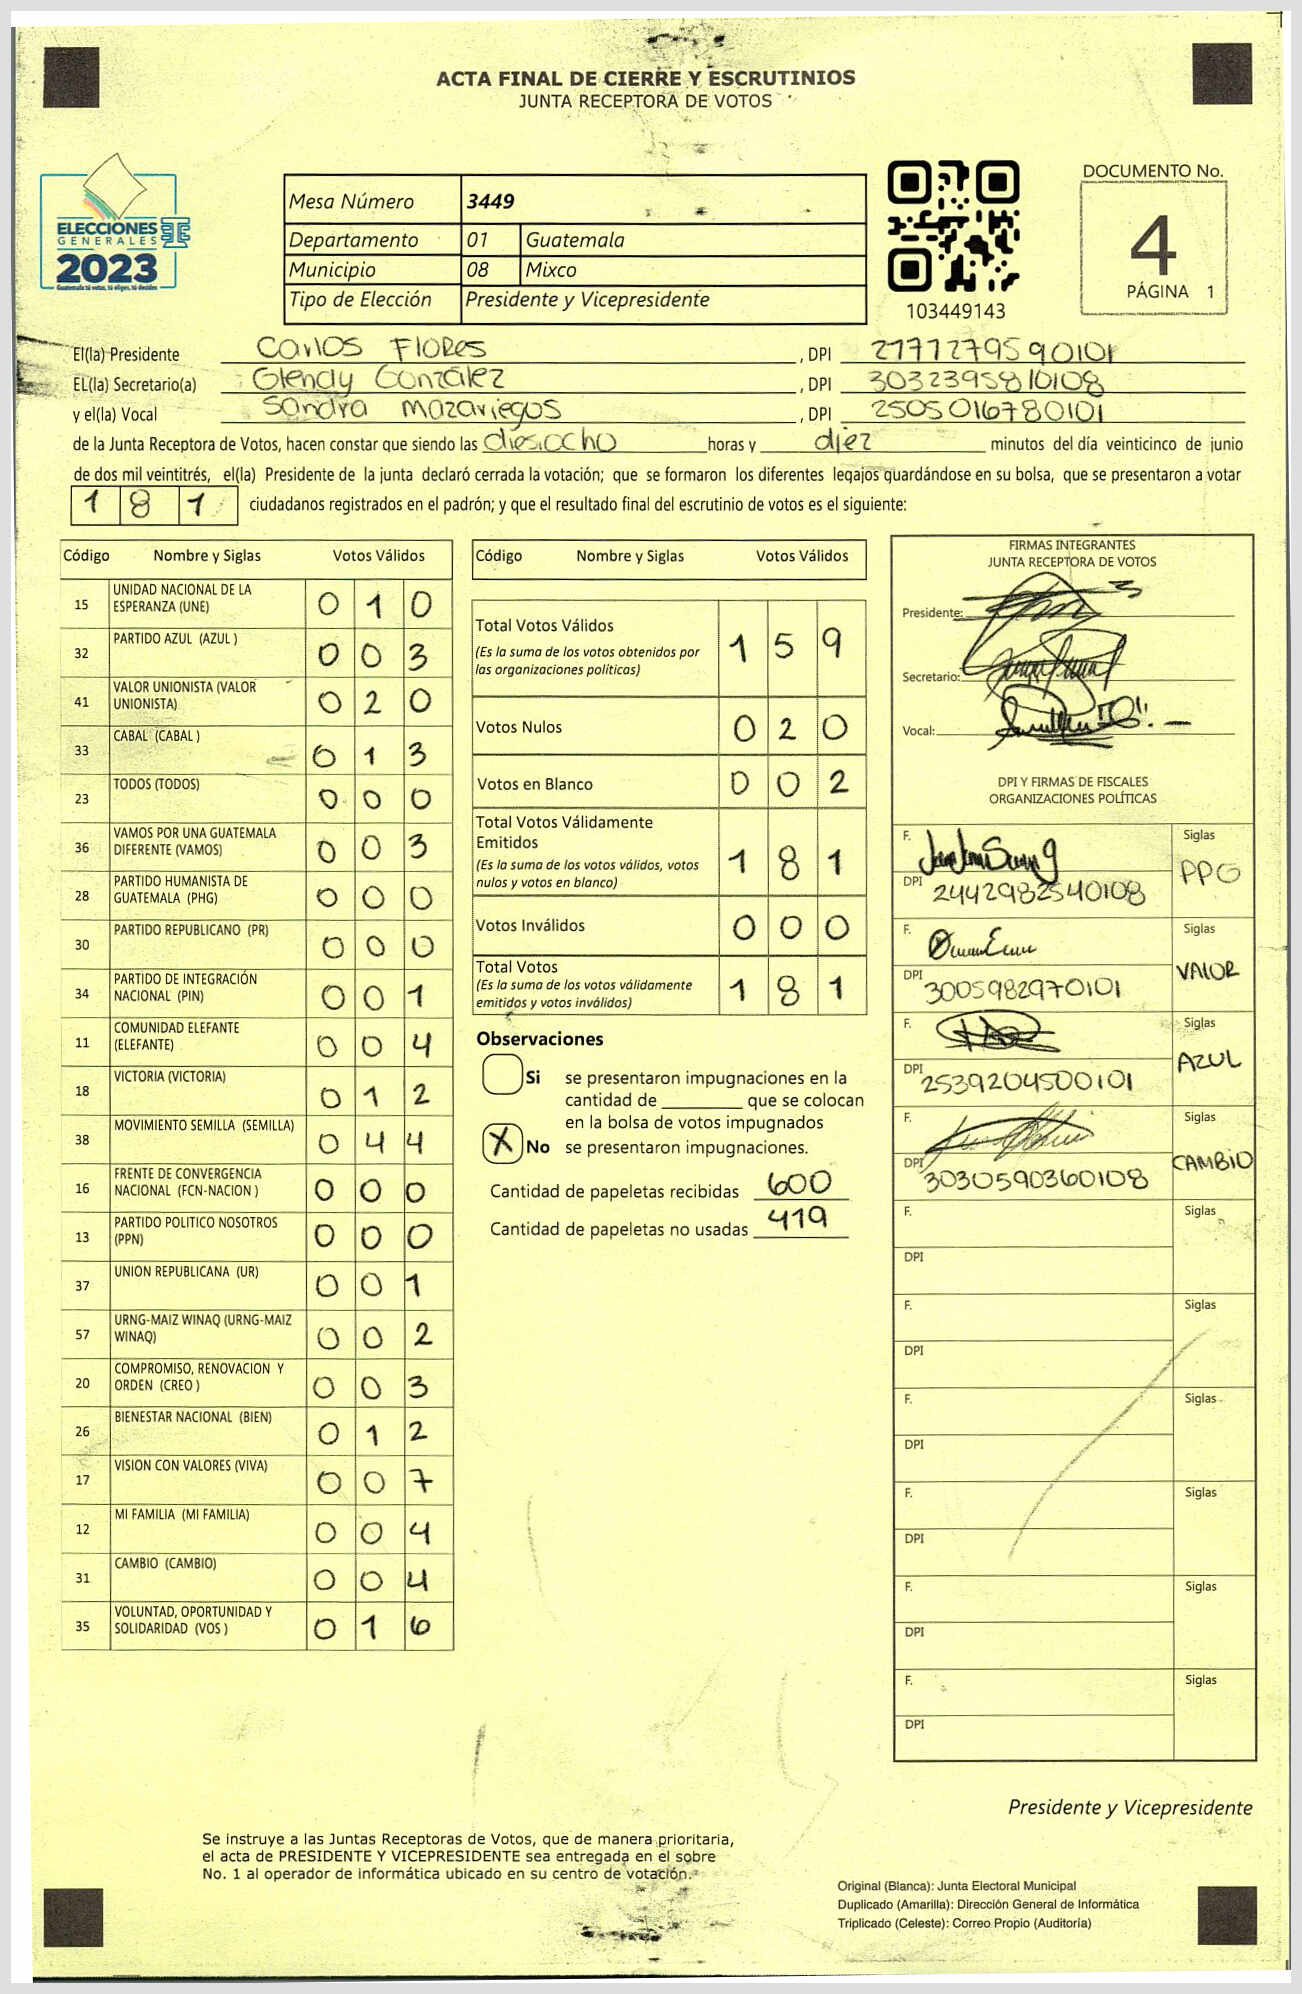 ACTA FINAL DE CIERRE Y ESCRUTINIOS
JUNTA RECEPTORA DE VOTOS
ELECCIONES
GENERALES
2023
Guatemala tú votas, tú eliges, tú decides
Mesa Número 3449
Departamento 01 Guatemala
Municipio 08 Mixco
Tipo de Elección Presidente y Vicepresidente
103449143
DOCUMENTO No.
4
PÁGINA 1
El(la) Presidente Carlos Flores , DPI 2177279590101
EL(la) Secretario(a) Glendy González , DPI 3032395810108
y el(la) Vocal Sandra Mazariegos , DPI 2505016780101
de la Junta Receptora de Votos, hacen constar que siendo las diesiocho horas y diez minutos del día veinticinco de junio
de dos mil veintitrés, el(la) Presidente de la junta declaró cerrada la votación; que se formaron los diferentes legajos guardándose en su bolsa, que se presentaron a votar
1 8 1 ciudadanos registrados en el padrón; y que el resultado final del escrutinio de votos es el siguiente:
Código Nombre y Siglas Votos Válidos
15 UNIDAD NACIONAL DE LA ESPERANZA (UNE) 0 1 0
32 PARTIDO AZUL (AZUL ) 0 0 3
41 VALOR UNIONISTA (VALOR UNIONISTA) 0 2 0
33 CABAL (CABAL ) 0 1 3
23 TODOS (TODOS) 0 0 0
36 VAMOS POR UNA GUATEMALA DIFERENTE (VAMOS) 0 0 3
28 PARTIDO HUMANISTA DE GUATEMALA (PHG) 0 0 0
30 PARTIDO REPUBLICANO (PR) 0 0 0
34 PARTIDO DE INTEGRACIÓN NACIONAL (PIN) 0 0 1
11 COMUNIDAD ELEFANTE (ELEFANTE) 0 0 4
18 VICTORIA (VICTORIA) 0 1 2
38 MOVIMIENTO SEMILLA (SEMILLA) 0 4 4
16 FRENTE DE CONVERGENCIA NACIONAL (FCN-NACION ) 0 0 0
13 PARTIDO POLITICO NOSOTROS (PPN) 0 0 0
37 UNION REPUBLICANA (UR) 0 0 1
57 URNG-MAIZ WINAQ (URNG-MAIZ WINAQ) 0 0 2
20 COMPROMISO, RENOVACION Y ORDEN (CREO ) 0 0 3
26 BIENESTAR NACIONAL (BIEN) 0 1 2
17 VISION CON VALORES (VIVA) 0 0 7
12 MI FAMILIA (MI FAMILIA) 0 0 4
31 CAMBIO (CAMBIO) 0 0 4
35 VOLUNTAD, OPORTUNIDAD Y SOLIDARIDAD (VOS ) 0 1 6
Código Nombre y Siglas Votos Válidos
Total Votos Válidos 1 5 9
(Es la suma de los votos obtenidos por
las organizaciones políticas)
Votos Nulos 0 2 0
Votos en Blanco 0 0 2
Total Votos Válidamente
Emitidos 1 8 1
(Es la suma de los votos válidos, votos
nulos y votos en blanco)
Votos Inválidos 0 0 0
Total Votos 1 8 1
(Es la suma de los votos válidamente
emitidos y votos inválidos)
Observaciones
Si se presentaron impugnaciones en la
cantidad de ________ que se colocan
en la bolsa de votos impugnados
X No se presentaron impugnaciones.
Cantidad de papeletas recibidas 600
Cantidad de papeletas no usadas 419
FIRMAS INTEGRANTES
JUNTA RECEPTORA DE VOTOS
Presidente:
Secretario:
Vocal:
DPI Y FIRMAS DE FISCALES
ORGANIZACIONES POLÍTICAS
F. Siglas
DPI 2442982540108 PPG
F. Siglas
DPI 3005982970101 VALOR
F. Siglas
DPI 2539204500101 AZUL
F. Siglas
DPI 3030590360108 CAMBIO
F. Siglas
DPI
F. Siglas
DPI
F. Siglas
DPI
F. Siglas
DPI
F. Siglas
DPI
F. Siglas
DPI
Presidente y Vicepresidente
Se instruye a las Juntas Receptoras de Votos, que de manera prioritaria,
el acta de PRESIDENTE Y VICEPRESIDENTE sea entregada en el sobre
No. 1 al operador de informática ubicado en su centro de votación.
Original (Blanca): Junta Electoral Municipal
Duplicado (Amarilla): Dirección General de Informática
Triplicado (Celeste): Correo Propio (Auditoría)